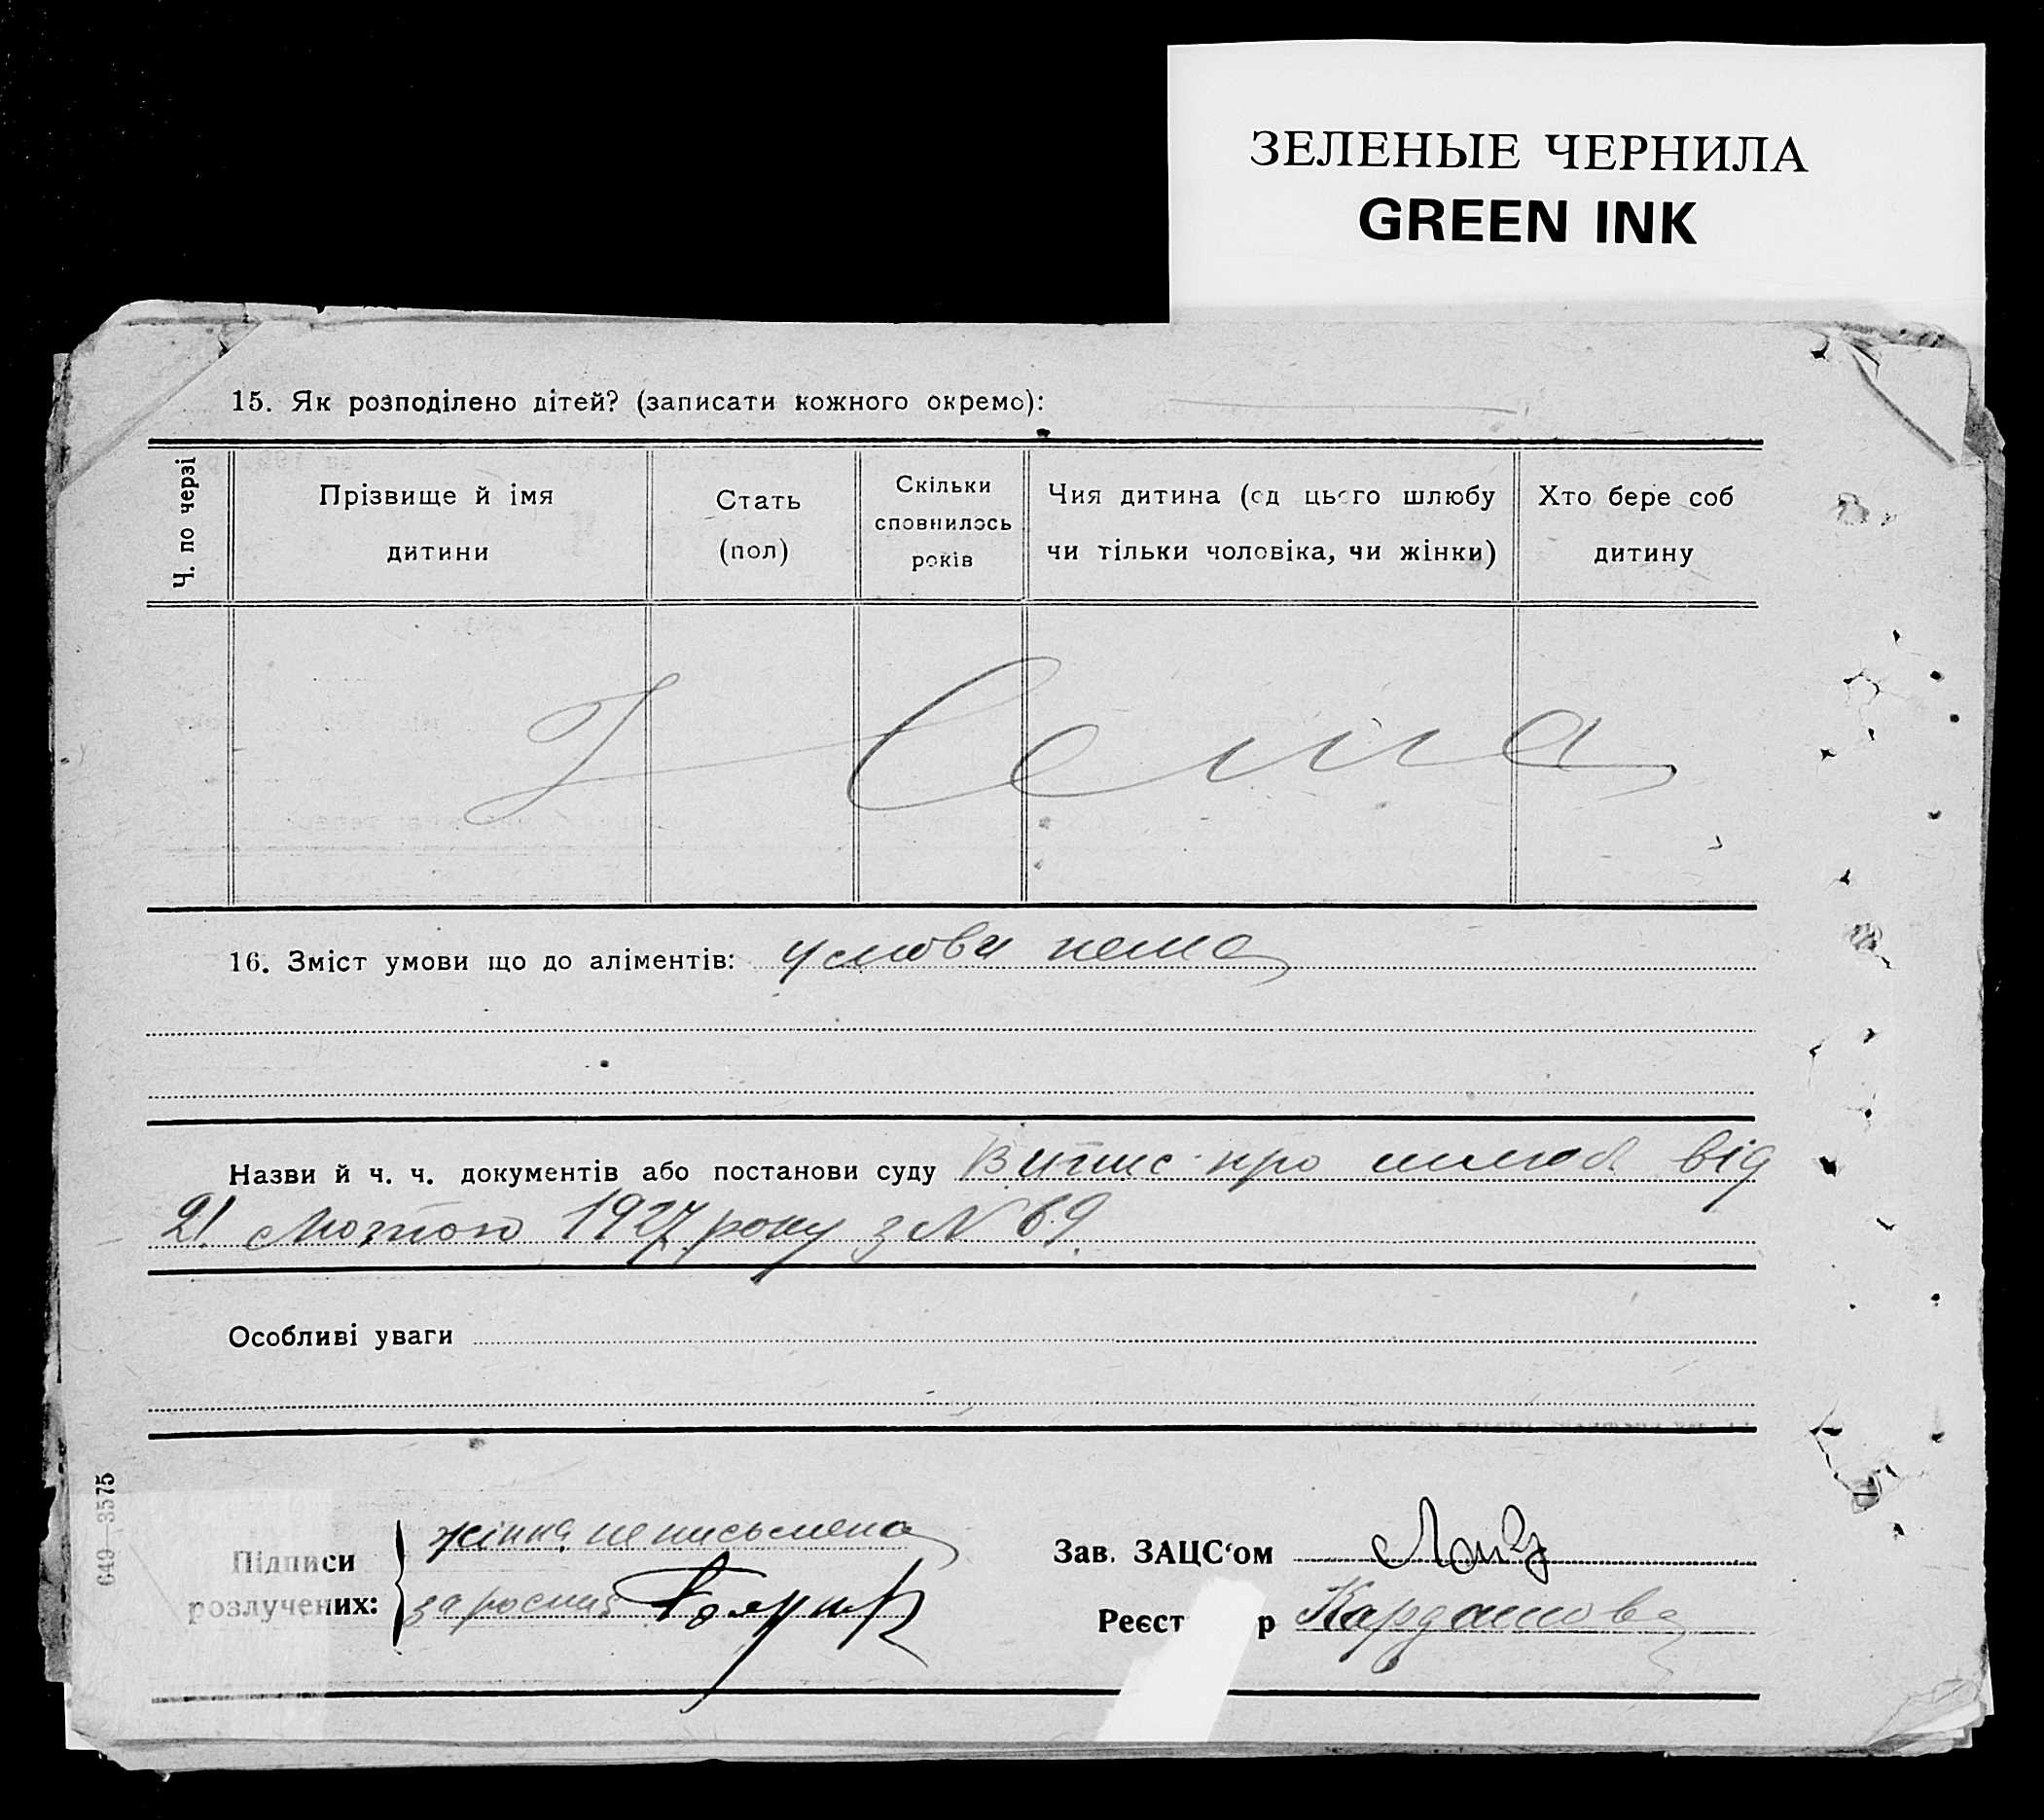 ЗЕЛЕНЫЕ ЧЕРНИЛА
GREEN INK
15. Як розподілено дітей? (записати кожного окремо):
Ч. по черзі
Прізвище й імя
дитини
Стать
(пол)
Скільки
сповнилось
років
Чия дитина (од цього шлюбу
чи тільки чоловіка, чи жінки)
Хто бере соб
дитину
Нема
16. Зміст умови що до аліментів: умови нема
Назви й ч. ч. документів або постанови суду Витис про шлюб від
21 Лютого 1927 року з N 69.
Особливі уваги
649—3575
Підписи
розлучених:
жінка неписьмена
за росп
Зав. ЗАЦС‘ом
Реєст р Кардашова